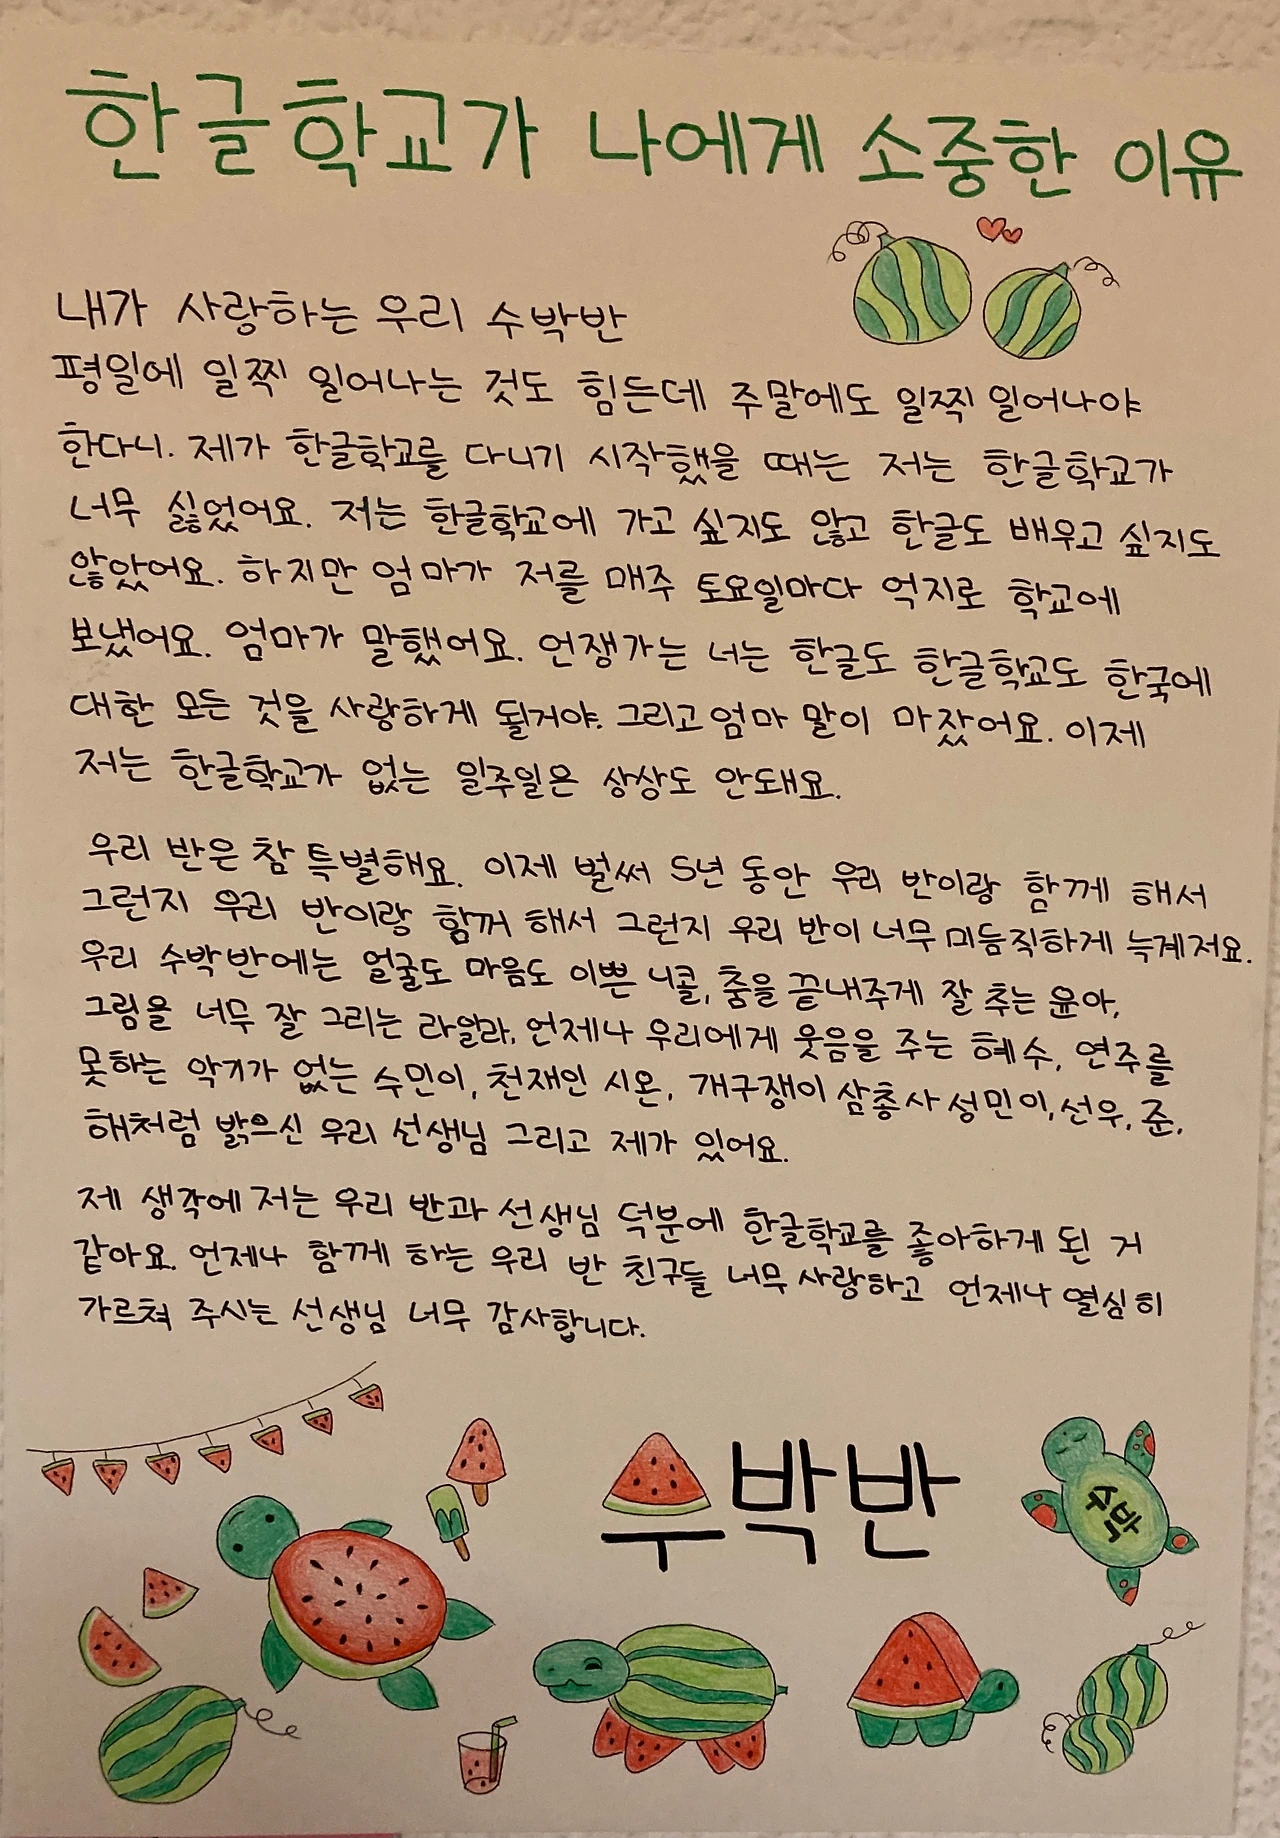 한글학교가 나에게 소중한 이유
내가 사랑하는 우리 수박반
평일에 일찍 일어나는 것도 힘든데 주말에도 일찍 일어나야
한다니. 제가 한글학교를 다니기 시작했을 때는 저는 한글학교가
너무 싫었어요. 저는 한글학교에 가고 싶지도 않고 한글도 배우고 싶지도
않았어요. 하지만 엄마가 저를 매주 토요일마다 억지로 학교에
보냈어요. 엄마가 말했어요. 언쟁가는 너는 한글도 한글학교도 한국에
대한 모든 것을 사랑하게 될거야. 그리고 엄마 말이 마잤어요. 이제
저는 한글학교가 없는 일주일은 상상도 안돼요.
우리 반은 참 특별해요. 이제 벌써 5년 동안 우리 반이랑 함께 해서
그런지 우리 반이랑 함꺼 해서 그런지 우리 반이 너무 미듬직하게 늑계저요.
우리 수박반에는 얼굴도 마음도 이쁜 니콜, 춤을 끝내주게 잘 추는 윤아,
그림을 너무 잘 그리는 라일라, 언제나 우리에게 웃음을 주는 혜수, 연주를
못하는 악기가 없는 수민이, 천재인 시온, 개구쟁이 삼총사 성민이, 선우, 준,
해처럼 밝으신 우리 선생님 그리고 제가 있어요.
제 생각에 저는 우리 반과 선생님 덕분에 한글학교를 좋아하게 된 거
같아요. 언제나 함께 하는 우리 반 친구들 너무 사랑하고 언제나 열심히
가르쳐 주시는 선생님 너무 감사합니다.
수박반
수박